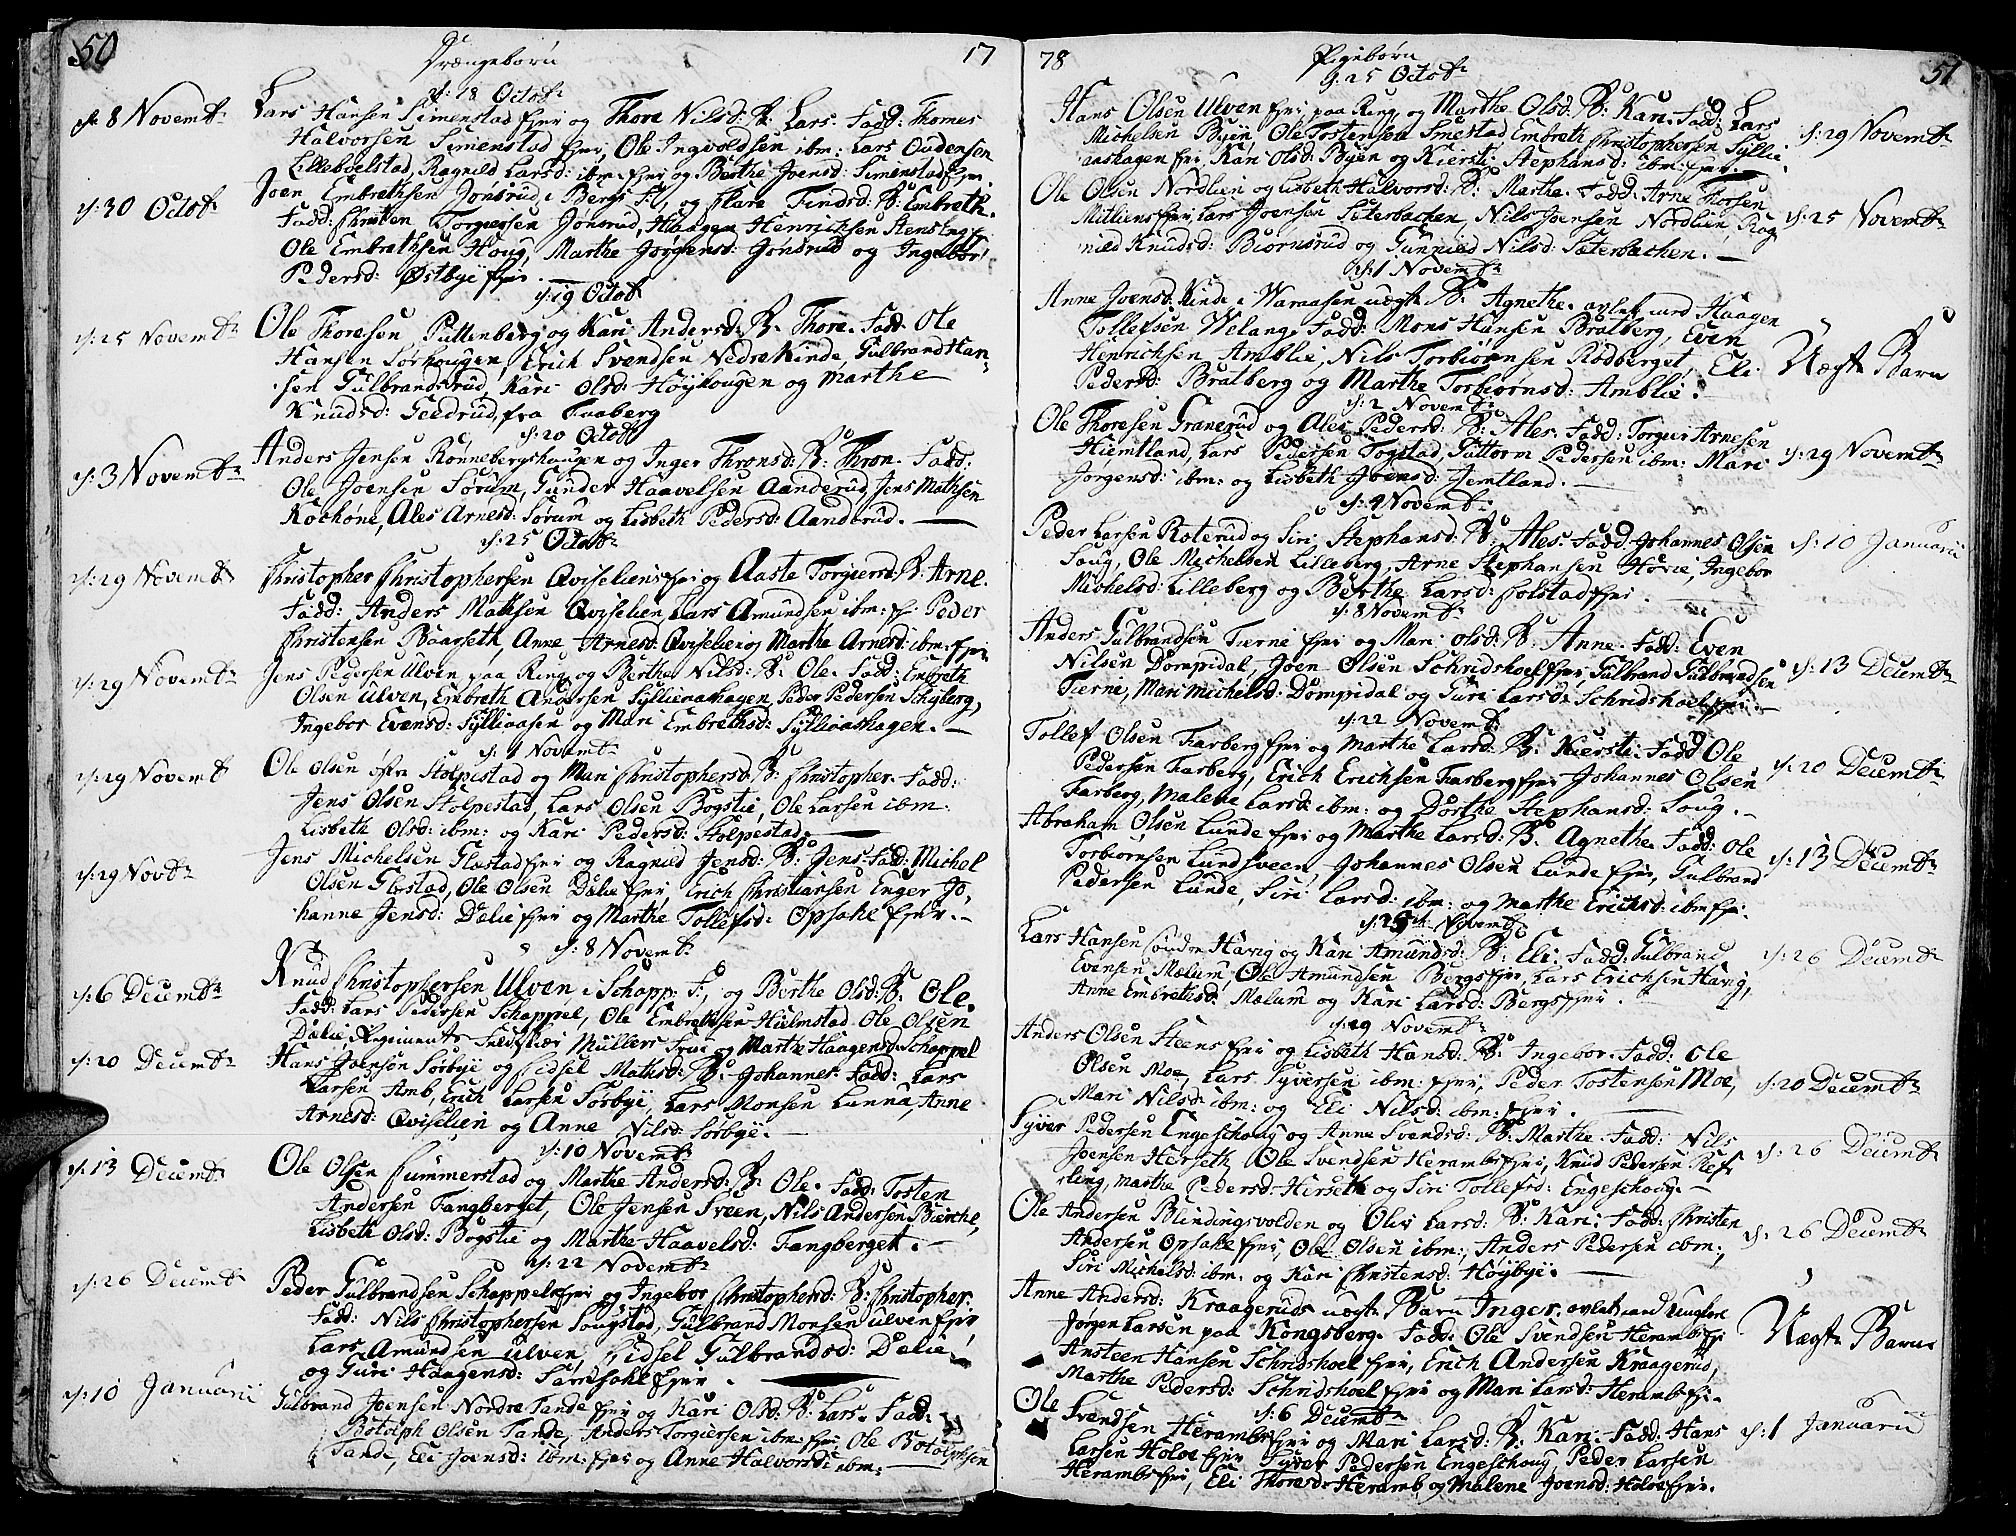 50
Drængebørn
17
d: 18 Octobr
d: 8 Novembr
Lars Hansen Simenstad Eyer og Thore Nilsd: B: Lars. Fadd: Thomes
Halvorsen Simenstad Eyer, Ole Ingvoldsen ibm: Lars Oudensen
Lilleboelstad, Ragnild Larsd: ibm: Eyer og Berthe Joensd: Simenstad Eyer
d: 30 Octobr
Joen Embrethsen Jonsrud i Bergs og Clare Findsd: B: Embreth.
Fadd: Christen Torgersen Jønsrud, Haagen Henrichsen
Ole Embrethsen Houg, Marthe Jørgensd: Jønsrud og Ingebor
Pedersd: Østbye Eyer.
d: 19 Octobr
d: 25 Novembr
Ole Thoresen Pullenberg og Kari Andersd: B: Thore. Fadd: Ole
Hansen Sørhougen, Erich Svendsen Nedre Kinde, Gulbrand Han-
sen Gulbrandsrud, Kari Olsd: Høyhougen og Marthe
Knudsd: fra Faaberg
d: 20 Octobr
d: 3 Novembr
Anders Jensen Rønnebergshaugen og Inger Thronsd: B: Thron. Fadd:
Ole Joensen Sørum, Gunder Haavelsen Aanderud, Jens Mathsen
Kochøne, Ales Arnesd: Sørum og Lisbeth Pedersd: Aanderud.
d: 25 Octobr
d: 29 Novembr
Christopher Christophersen Qviselien Eyer og Aaste Torgiersd: B: Arne.
Fadd: Anders Mathsen Qviselien, Lars Amundsen ibm: Peder
Christensen Baarseth, Anne Arnesd: Qviselie og Marthe Arnesd: ibm: Eyer
d: 29 Novembr
Jens Pedersen Ulven paa Ring og Berthe Nilsd: B: Ole. Fadd: Embreth
Olsen Ulven, Embreth Andersen Sylliaashagen, Peder Pedersen
Ingebor Evensd: Sylliaasen og Mari Embrethsd: Sylliaashagen.
d: 1 Novembr
d: 29 Novembr
Ole Olsen Stolpestad og Mari Christophersd: B: Christopher. Fadd:
Jens Olsen Stolpestad, Lars Olsen Bøgstie, Ole Larsen ibm.
Lisbeth Olsd: ibm: og Kari Pedersd: Stolpestad.
d: 29 Novbr
Jens Michelsen Glæstad Eyer og Ragnild Jensd: B: Jens. Fadd: Michel
Olsen Gløstad, Ole Olsen Dælie Eyer, Erich Christiansen Enger, Jo-
hanne Jensd: Dælie Eyer og Marthe Tollefsd: Opsahl Eyer.
d: 8 Novembr
d: 6 Decembr
Knud Christophersen Ulven i Schapp: og Berthe Olsd: B: Ole.
Fadd: Lars Pedersen Schappel, Ole Embrethsen Hielmstad, Ole Olsen
Dælie, Regiments Feldskiær Müllers Frue og Marthe Haagensd: Schappel
d: 20 Decembr
Hans Joensen Sørbye og Sidsel Mathsd: B: Johannes. Fadd: Lars
Larsen Amb, Erich Larsen Sørbye, Lars Monsen Lunna, Anne
Arnesd: Qviselien og Anne Nilsd: Sørbye.
d: 10 Novembr
d: 13 Decembr
Ole Olsen Summerstad og Marthe Andersd: B: Ole. Fadd: Tosten
Andersen Fangberget, Ole Jensen Sveen, Nils Andersen Bierche,
Lisbeth Olsd: Bøgstie og Marthe Haavelsd: Fangberget.
d: 22 Novembr
d: 26 Decembr
Peder Gulbrandsen Schappels Eyer og Ingebor Christophersd: B: Christopher.
Fadd: Nils Christophersen Sougstad, Gulbrand Monsen Ulven Eyer
Lars Amundsen Ulven, Sidsel Gulbrandsd: Dælie,
og Guri Haagensd: Særsahl Eyer.
d: 10 Januarii
Gulbrand Joensen Nordre Tande Eyer og Kari Olsd: B: Lars. Fadd:
Botolph Olsen Tande, Anders Torgiersen ibm: Eyer Ole Botolphsen
Tande, Eli Joensd: ibm: Eyer og Anne Halvorsd: ibm:
78
Pigebørn
51
d: 25 Octobr
Hans Olsen Ulven Eyer paa Ring og Marthe Olsd: B: Kari. Fadd: Lars
Michelsen Byen, Ole Tostensen Smestad, Embreth Christophersen Syllie-
aashagen Eyer, Kari Olsd: Byen og Kiersti Stephansd: ibm: Eyer.
d: 29 Novembr
Ole Olsen Nordlien og Lisbeth Halvorsd: B: Marthe. Fadd: Arne Thorsen
Mitlien Eyer, Lars Joensen Sæterbachen, Nils Joensen Nordlien, Rag-
nild Knudsd: Biørnsrud og Gunnild Nilsd: Sæterbachen.
d: 25 Novembr
d: 1 Novembr
Anne Joensd: Kinde i Waraasen uægte B: Agnethe. avlet med Haagen
Tollefsen Welang. Fadd: Mons Hansen Bratberg, Even
Henrichsen Amblie, Nils Torbiørnsen Rødberget, Eli
Pedersd: Bratberg og Marthe Torbiørnsd: Amblie.
Uægte Barn
d: 2 Novembr
Ole Thoresen Granerud og Ales Pedersd: B: Ales. Fadd: Torgier Arnesen
Hiemtland, Lars Pedersen Fogstad, Guttorm Pedersen ibm: Mari
Jørgensd: ibm: og Lisbeth Joensd: Jemtland.
d: 29 Novembr
d: 4 Novembr
Peder Larsen Roterud og Siri Stephansd: B: Ales. Fadd: Johannes Olsen
Soug, Ole Michelsen Lilleberg, Arne Stephansen Hovie, Ingebor
Michelsd: Lilleberg og Berthe Larsd: Holstad Eyer.
d: 10 Januarii
d: 8 Novembr
Anders Gulbrandsen Tierne Eyer og Mari Olsd: B: Anne. Fadd: Even
Nilsen Dompidal, Joen Olsen Schridshoel Eyer, Gulbrand Gulbrandsen
Tierne, Mari Michelsd: Dompidal og Guri Larsd: Schridshoel Eyer.
d: 13 Decembr
d: 22 Novembr
Tollef Olsen Farberg Eyer og Marthe Larsd: B: Kiersti. Fadd: Ole
Pedersen Farberg, Erich Erichsen Farberg Eyer Johannes Olsen
Farberg, Malene Larsd: ibm: og Dorthe Stephansd: Soug.
d: 20 Decembr
Abraham Olsen Lunde Eyer og Marthe Larsd: B: Agnethe. Fadd: Ole
Torbiørnsen Lundsveen, Johannes Olsen Lunde Eyer, Gulbrand
Pedersen Lunde, Siri Larsd: ibm: og Marthe Erichsd: ibm Eyer.
d: 13 Decembr
d: 25 Novembr
Lars Hansen Søndre Havig og Kari Amundsd: B: Eli. Fadd: Gulbrand
Evensen Mælum, Ole Amundsen Bergs Eyer, Lars Erichsen Havig,
Anne Embrethsd: Mælum og Kari Larsd: Bergs Eyer.
d: 26 Decembr
d: 29 Novembr
Anders Olsen Steens Eyer og Lisbeth Hansd: B: Ingebor. Fadd: Ole
Olsen Moe, Lars Syversen ibm: Eyer, Peder Tostensen Moe,
Mari Nilsd: ibm: og Eli Nilsd: ibm: Eyer.
d: 20 Decembr
Syver Pedersen Engeschoug og Anne Svendsd: B: Marthe. Fadd: Nils
Joensen Herseth, Ole Svendsen Herambs Eyer, Knud Pedersen Ref-
ling, Marthe Pedersd: Herseth og Siri Tollefsd: Engeschoug.
d: 26 Decembr
Ole Andersen Blindingsvolden og Oliv Larsd: B: Kari. Fadd: Christen
Andersen Opsahl Eyer, Ole Olsen ibm:, Anders Pedersen ibm:,
Siri Michelsd: ibm: og Kari Christensd: Høybye.
d: 26 Decembr
Anne Andersd: Kraageruds uægte Barn Inger. avlet med Ungkarl
Jørgen Larsen paa Kongsberg. Fadd: Ole Svendsen Herambs Eyer
Ansteen Hansen Schridshoel Eyer, Erich Andersen Kraagerud,
Marthe Pedersd: Schridshoel Eyer og Mari Larsd: Herambs Eyer.
Uægte Barn
d: 6 Decembr
Ole Svendsen Herambs Eyer og Mari Larsd: B: Kari. Fadd: Hans
Larsen Holoe Eyer Syver Pedersen Engeschoug, Peder Larsen
Herambs Eyer, Eli Thoresd: Heramb og Malene Joensd: Holoe Eyer.
d: 1 Januarii